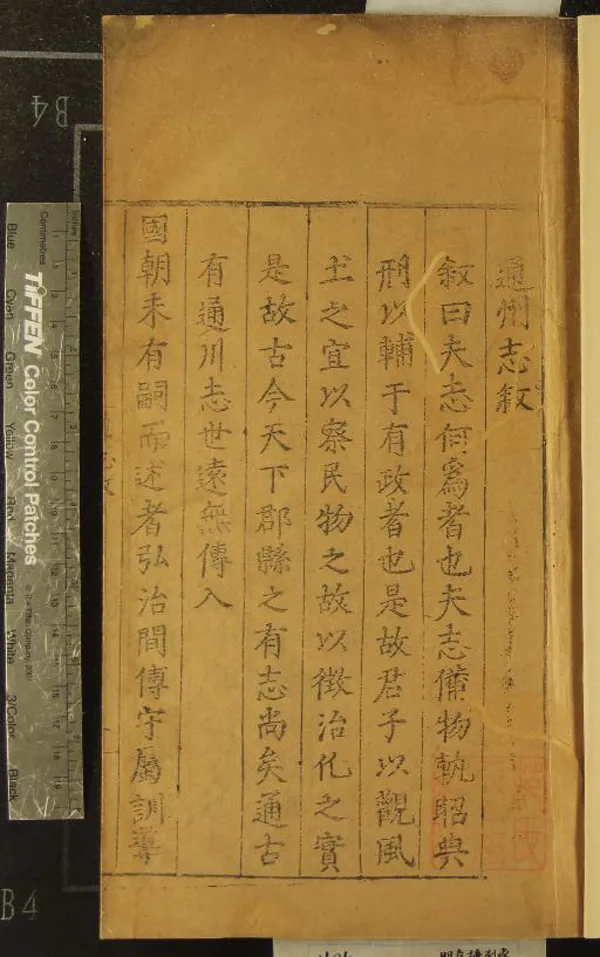 通州志敘
敘曰夫志何爲者也夫志備物軌昭典
刑以輔于有政者也是故君子以觀風
土之宜以察民物之故以徵治化之實
是故古今天下郡縣之有志尚矣通古
有通川志世遠無傳入
國朝未有嗣而述者弘治間傅守屬訓導
B4
B4
Centimetres
Inches
TIFFEN Color Control Patches
Blue
Cyan
Green
Yellow
Red
Magenta
White
3/Color
Black